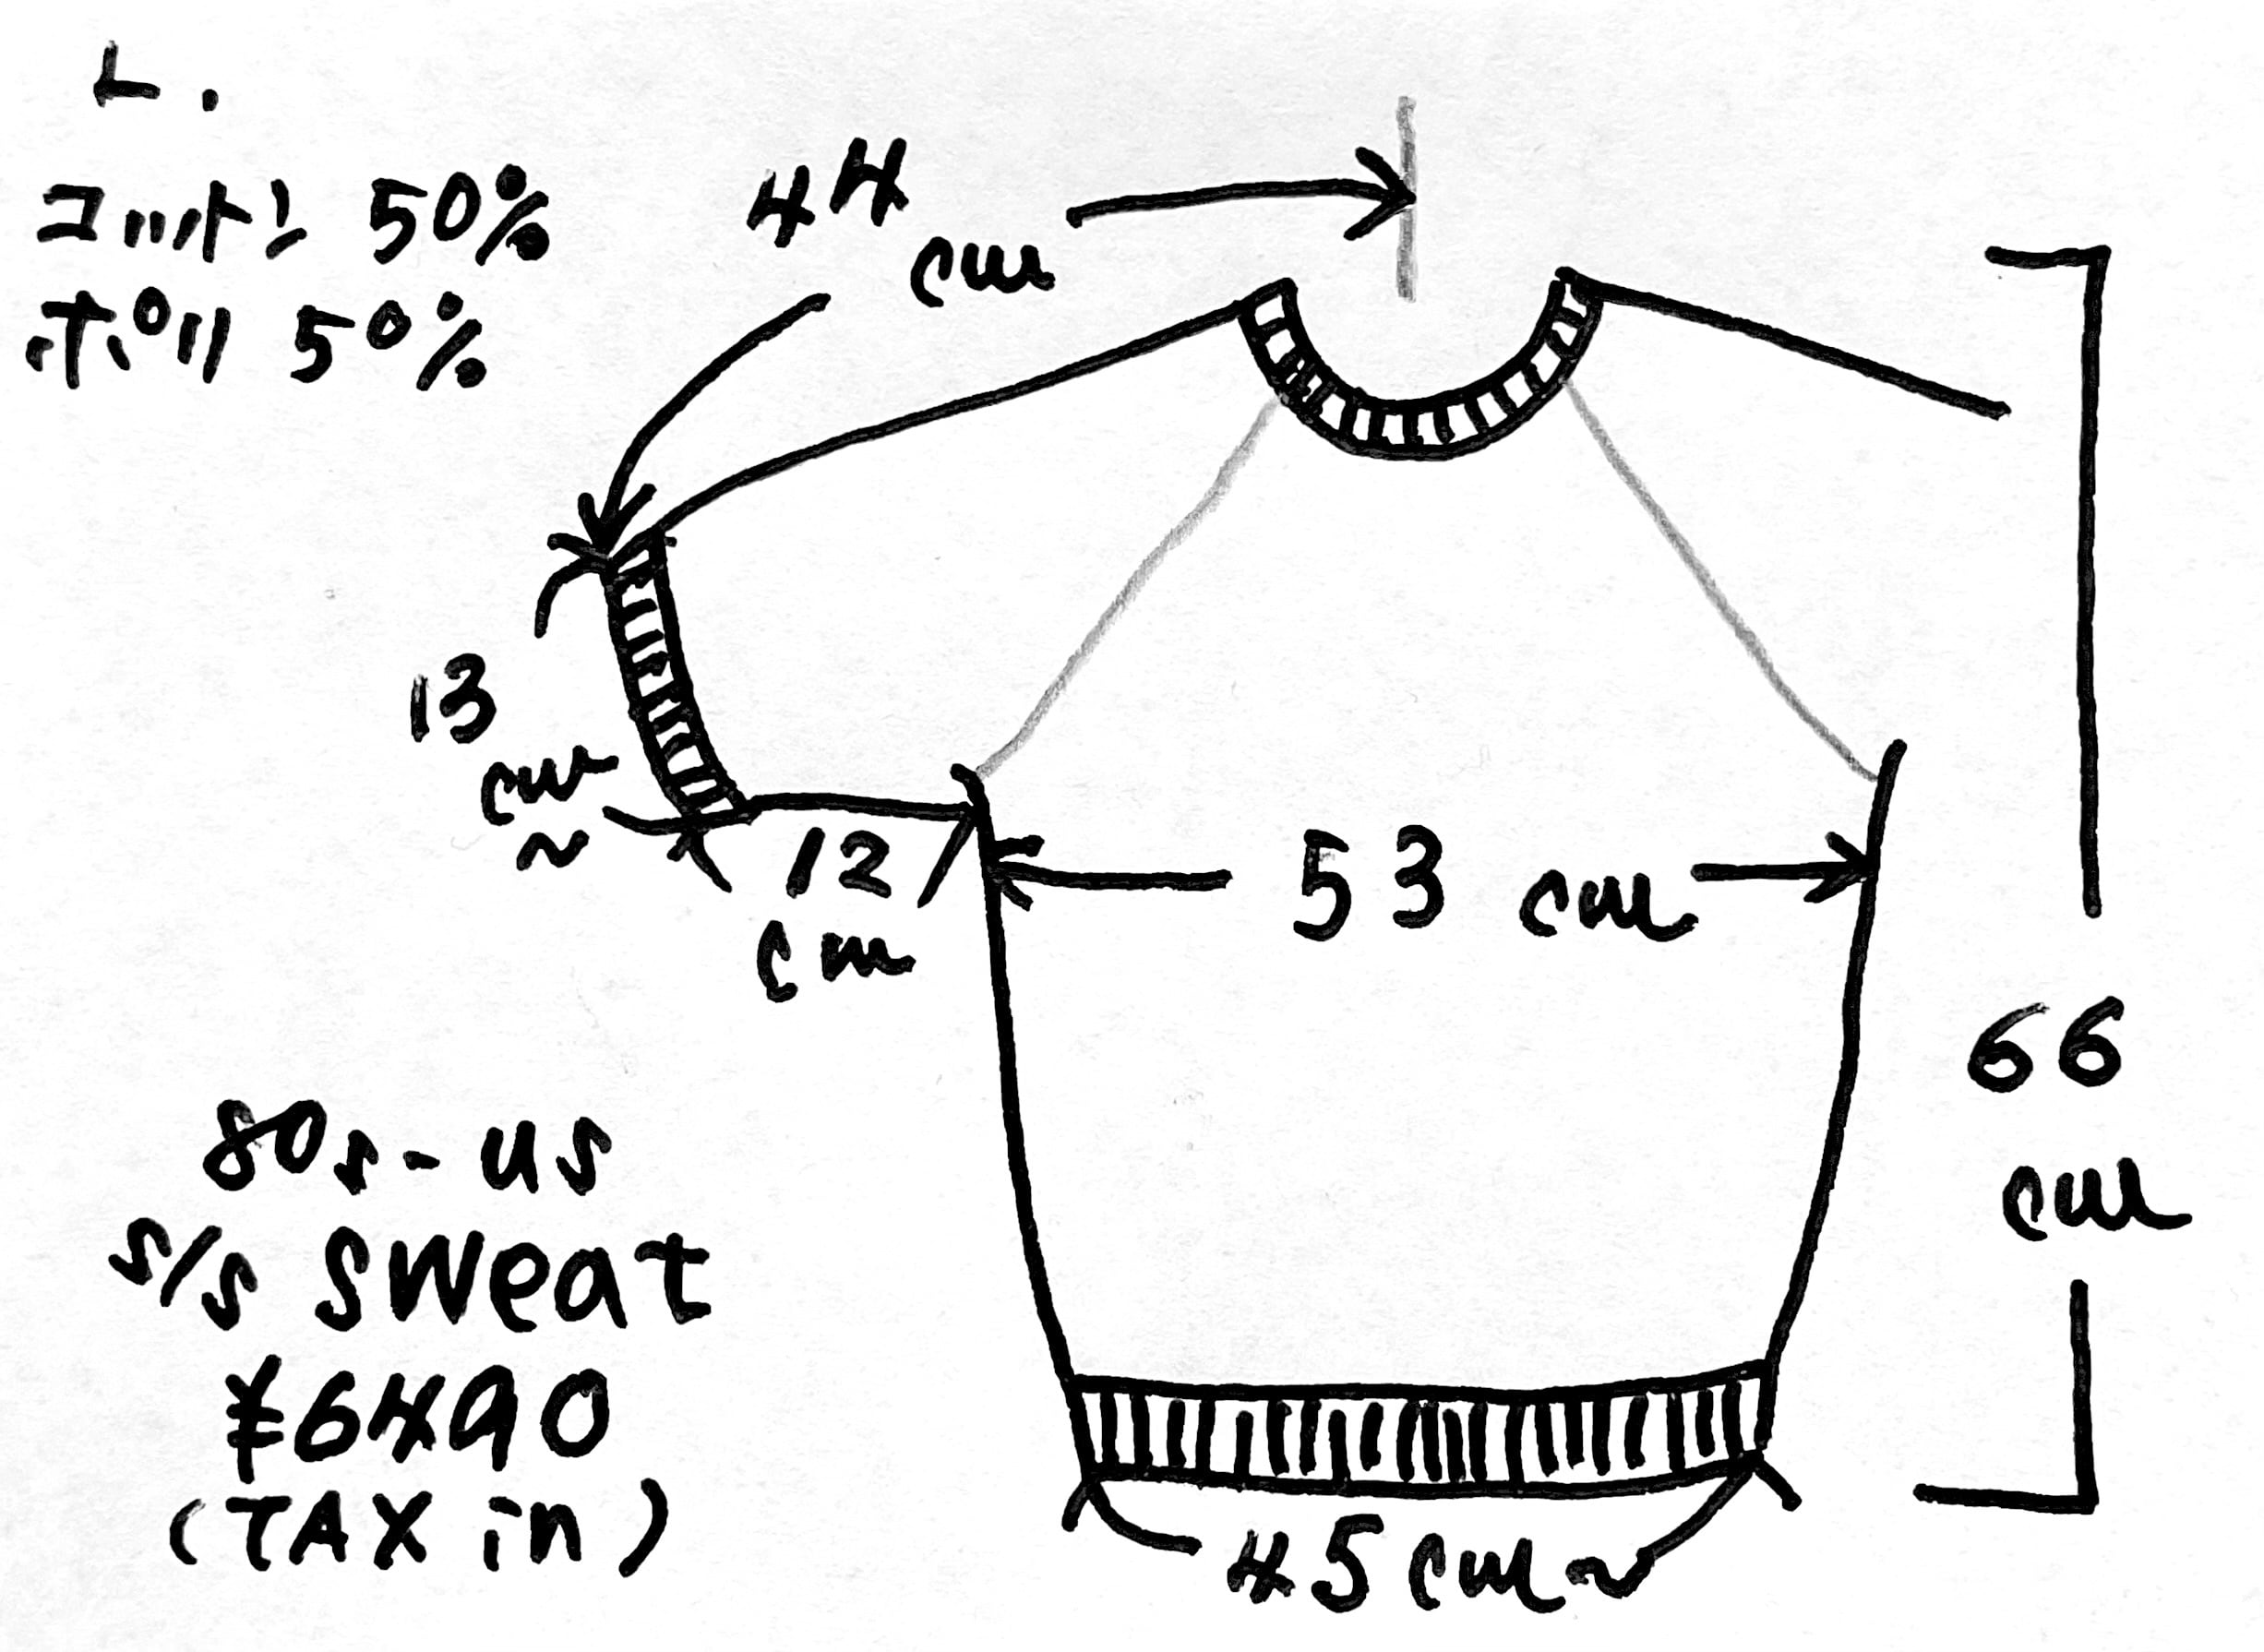 L.
コットン 50%
ポリ 50%
44
cm
13
cm
~
12
cm
53 cm
66
cm
80s-us
s/s sweat
¥6490
(TAX in)
45cm~